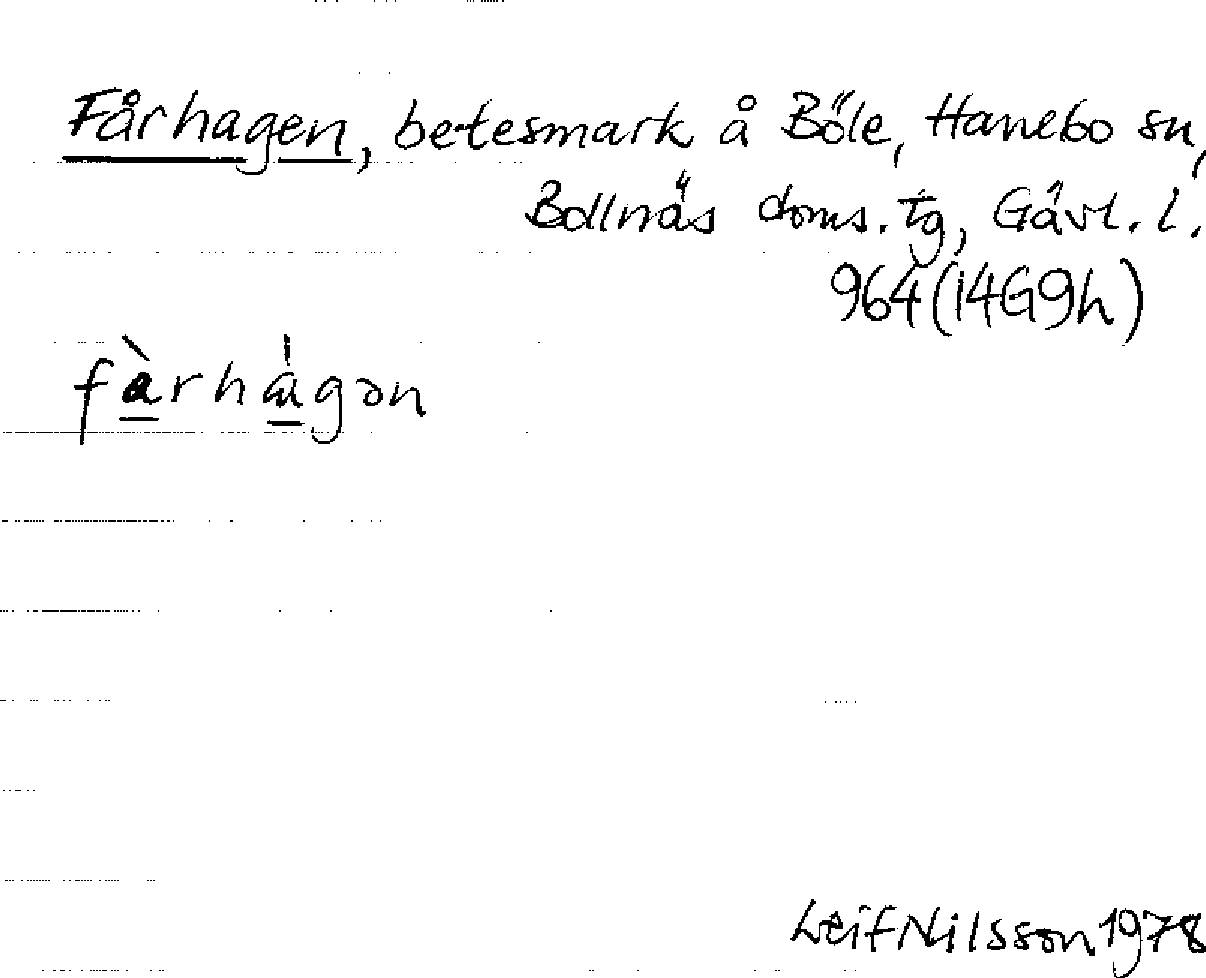 Fårhagen, betesmark å Böle, Hanebo sn,
Bollnäs doms. tg, Gävl. l.
964 (14G9h)
fàrhágən
Leif Nilsson 1978